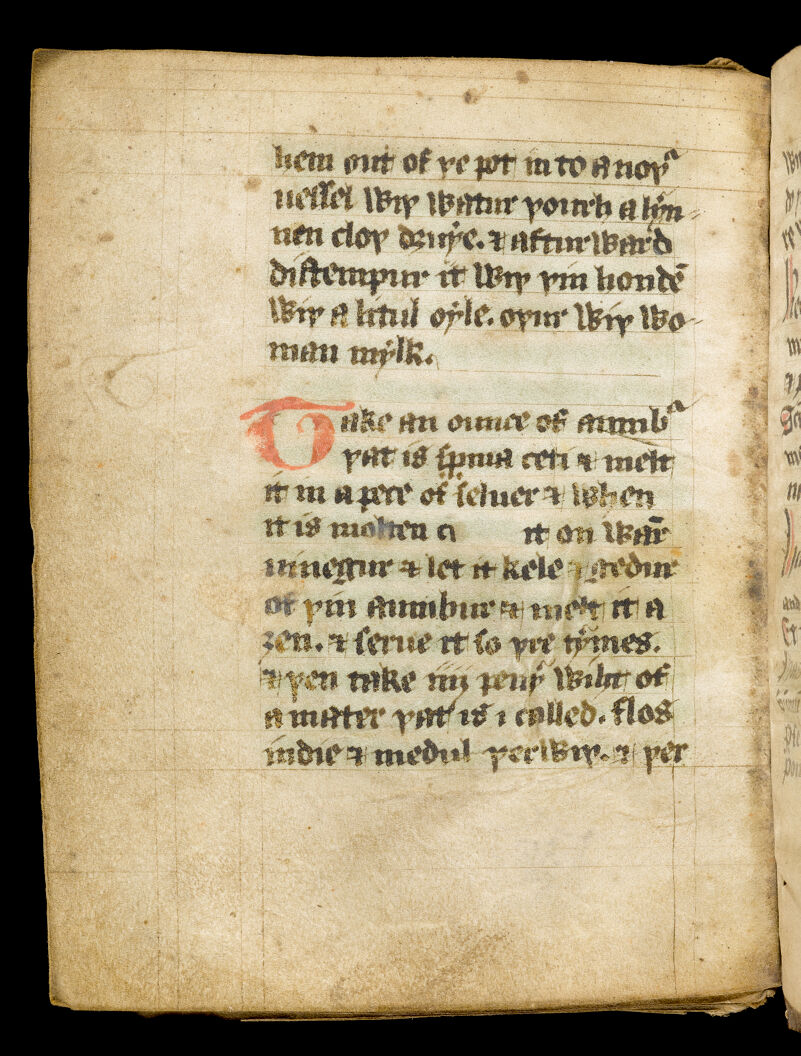 hem out of þe pot in to a noþ͛
uessel wiþ watur þourh a lyn-
nen cloþ druye. ⁊ afturward
distempur it wiþ þin hondē
wiþ a litul oyle. oþur wiþ wo-
man mylk.
Take an ounce of aumb͛
þat is spma ceti ⁊ melt
it in a pece of seluer ⁊ when
it is molten it on war̄
uinegur ⁊ let it kele ⁊ gedur
of þin aumbur ⁊ melt it a
ȝen. ⁊ serue it so þre tymes.
⁊ þen take iiij peny wiht of
a mater þat is i called. flos
indie ⁊ medul þerwiþ. ⁊ þer